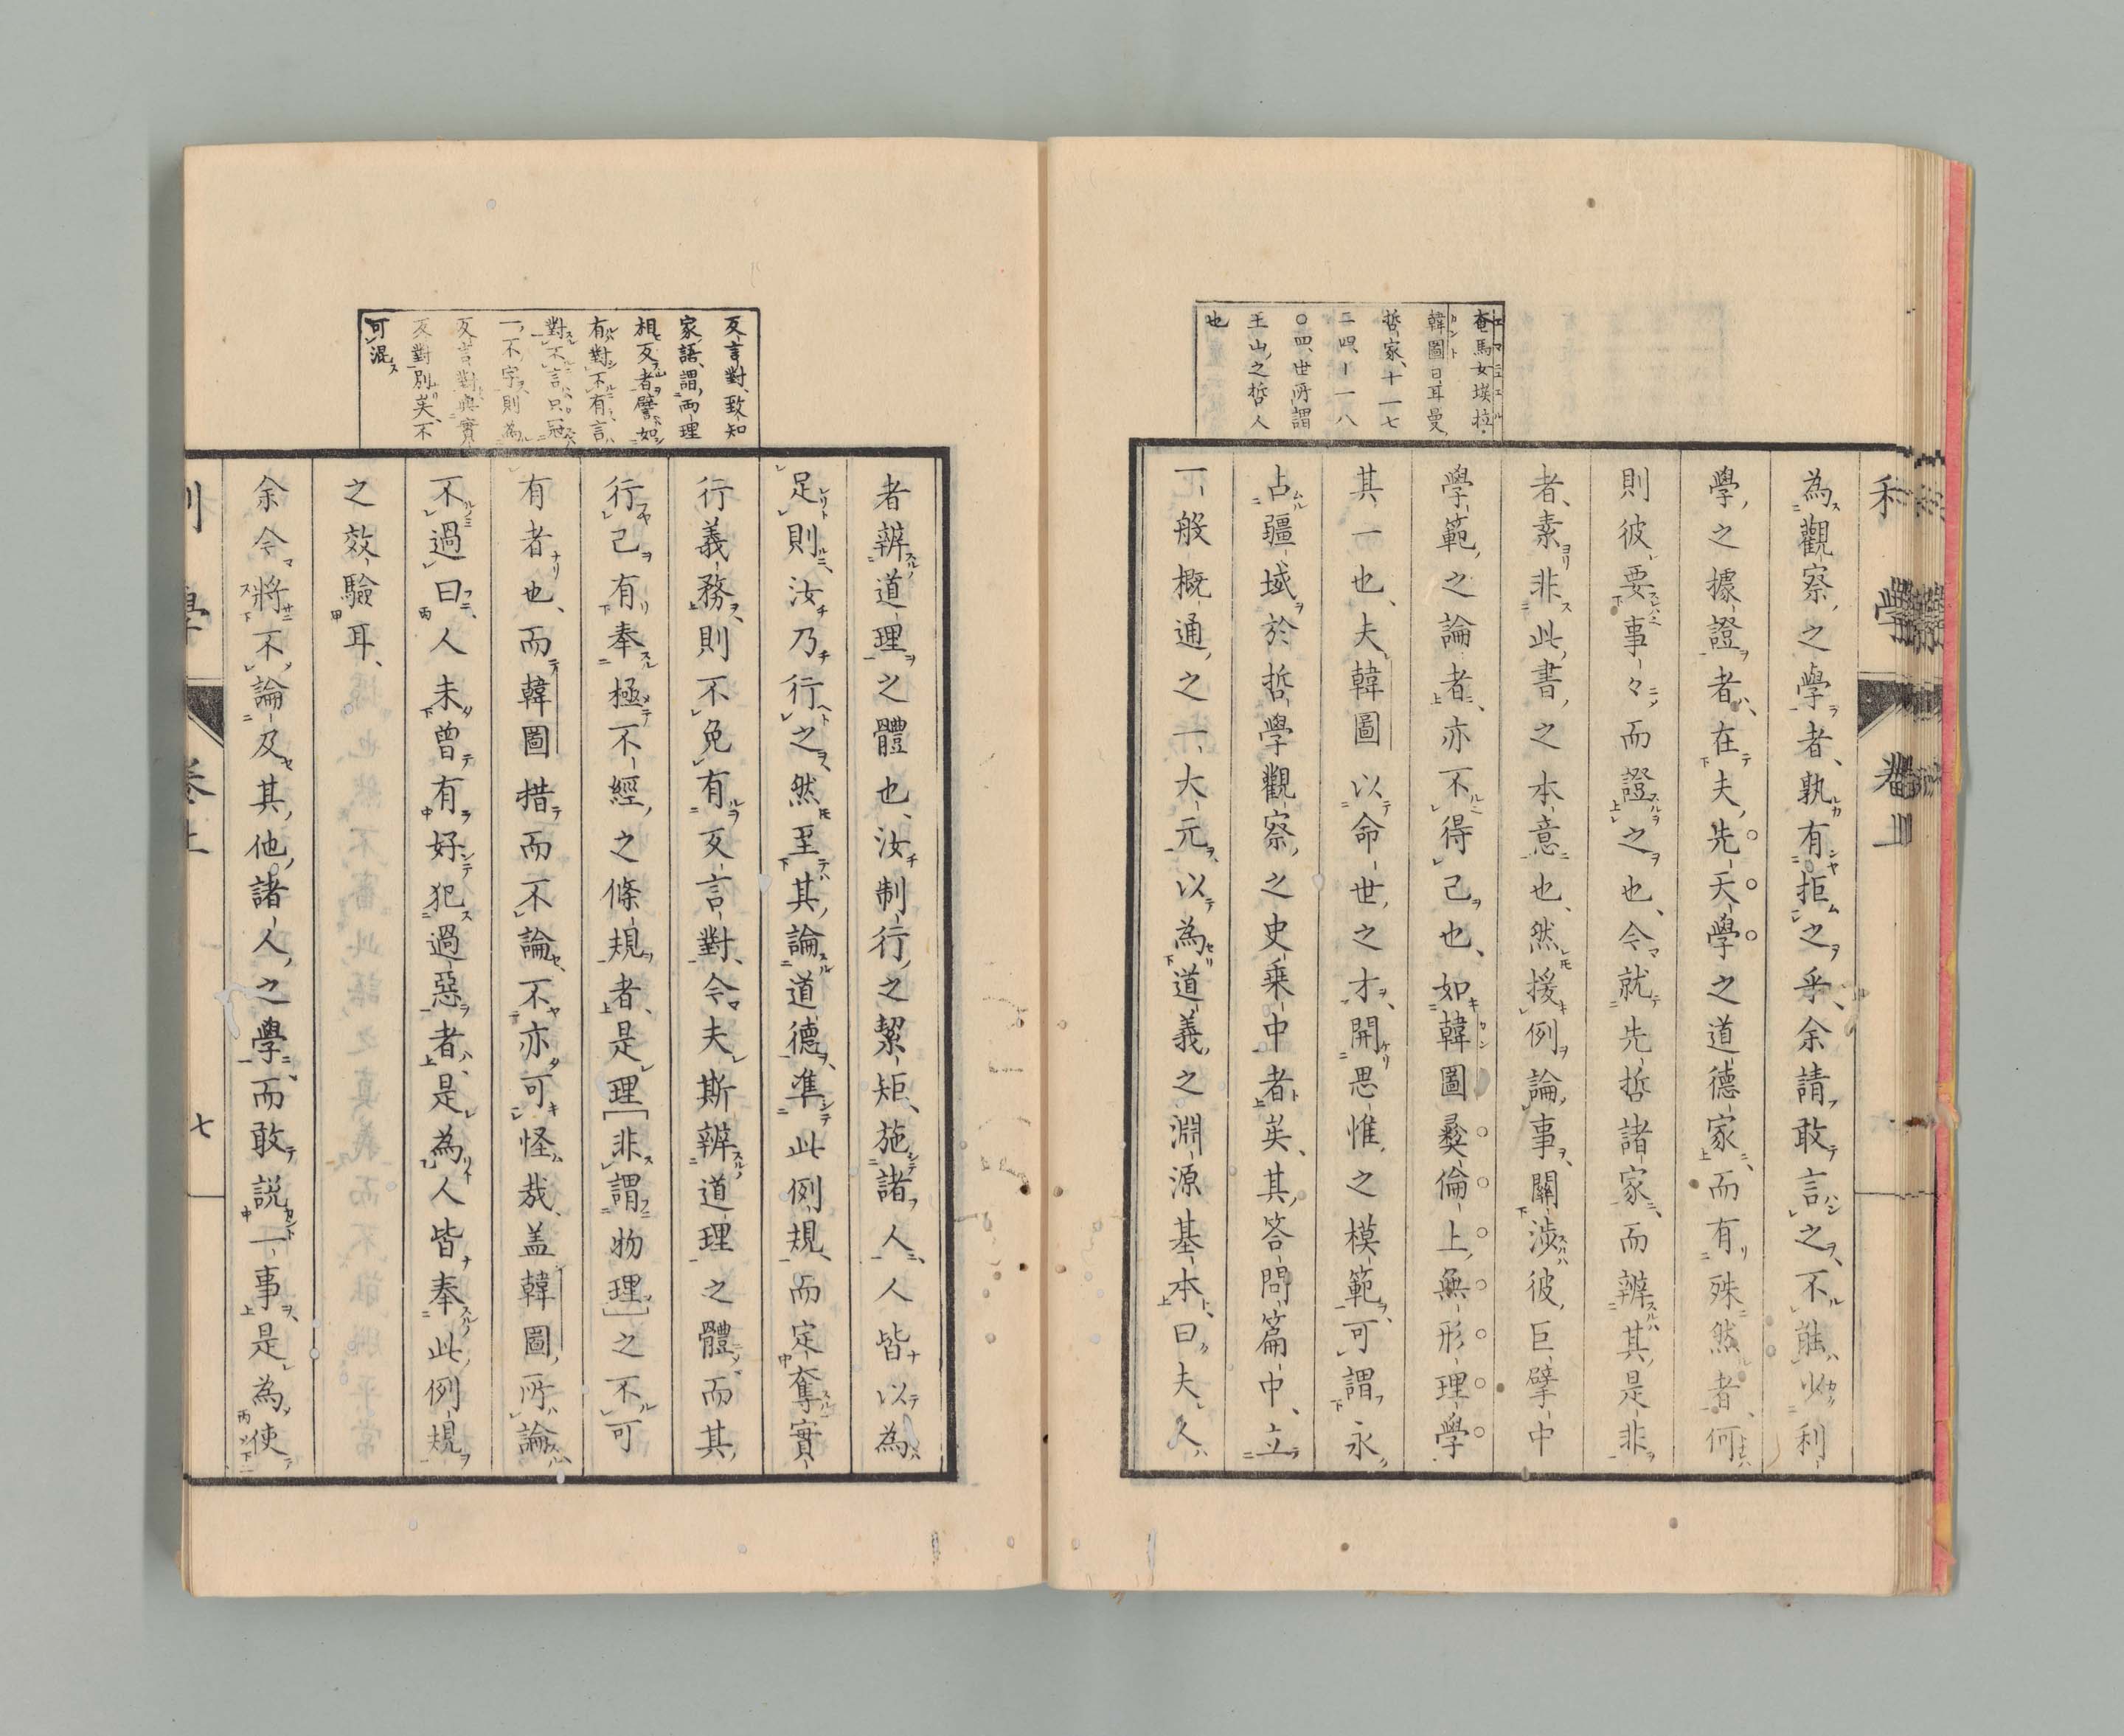 利學 卷上
奄馬女埃拉
韓圖日耳曼
哲家、十一七
二四、一一八
〇四、世所謂
王山之哲人
也
為觀察之學者、孰有拒之乎、余請敢言之、不能少利
學之據證者、在夫先天學之道德家、而有殊然者、何
則彼要事々而證之也、今就先哲諸家、而辨其是非
者、素非此書之本意也、然援例論事、關涉彼巨擘中
學範之論者、亦不得已也、如韓圖彝倫上無形理學
其一也、夫韓圖以命世之才、開思惟之模範、可謂永
占疆域於哲學觀察之史乘中者矣、其答問篇中、立
一般概通之一大元、以為道義之淵源基本、曰夫久
者辨道理之體也、汝制行之絜矩、施諸人、人皆以為
足、則汝乃行之、然至其論道德、準此例規、而定奪實
行義務、則不免有反言對、今夫斯辨道理之體、而其
行己有奉極不經之條規者、是理[非謂物理]之不可
有者也、而韓圖措而不論、不亦可怪哉、盖韓圖所論
不過曰人未曾有好犯過惡者、是為人皆奉此例規
之效驗耳、
余今將不論及其他諸人之學、而敢說一事、是為使
反言對、致知
家語、謂兩理
相反者、譬如
有對不有言
對不言、只冠
一不字、則為
反言對、與實
反對別矣、不
可混
利學 卷上 七